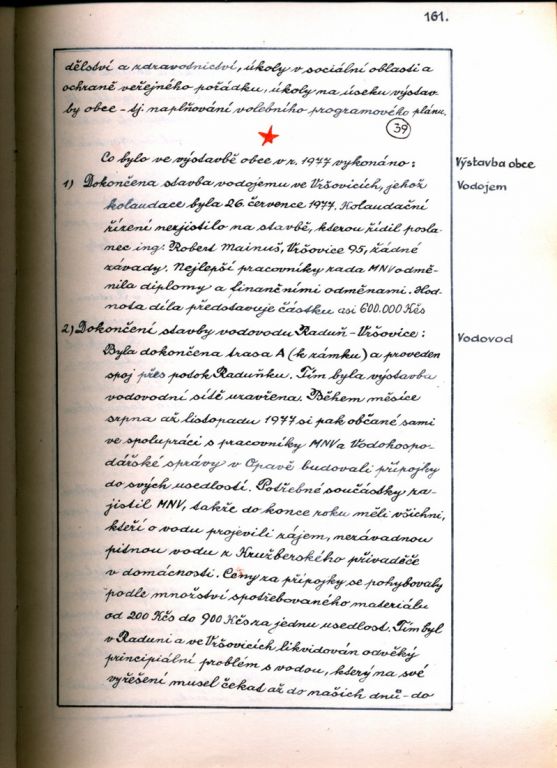 161.
dělství a zdravotnictví, úkoly v sociální oblasti a
ochraně veřejného pořádku, úkoly na úseku výstav-
by obce - tj. naplňování volebního programového plánu.
39
Co bylo ve výstavbě obce v r. 1977 vykonáno:
Výstavba obce
1) Dokončena stavba vodojemu ve Vršovicích, jehož
Vodojem
kolaudace byla 26. července 1977. Kolaudační
řízení nezjistilo na stavbě, kterou řídil posla-
nec ing. Robert Mainuš, Vršovice 95, žádné
závady. Nejlepší pracovníky rada MNV odmě-
nila diplomy a finančními odměnami. Hod-
nota díla představuje částku asi 600.000 Kčs
2) Dokončení stavby vodovodu Raduň - Vršovice:
Vodovod
Byla dokončena trasa A (k zámku) a proveden
spoj přes potok Raduňku. Tím byla výstavba
vodovodní sítě uzavřena. Během měsíce
srpna až listopadu 1977 si pak občané sami
ve spolupráci s pracovníky MNV a Vodohospo-
dářské správy v Opavě budovali přípojky
do svých usedlostí. Potřebné součástky za-
jistil MNV, takže do konce roku měli všichni,
kteří o vodu projevili zájem, nezávadnou
pitnou vodu z Kružberského přivaděče
v domácnosti. Ceny za přípojky se pohybovaly
podle množství spotřebovaného materiálu
od 200 Kčs do 900 Kčs za jednu usedlost. Tím byl
v Raduni a ve Vršovicích likvidován odvěký
principiální problém s vodou, který na své
vyřešení musel čekat až do našich dnů - do